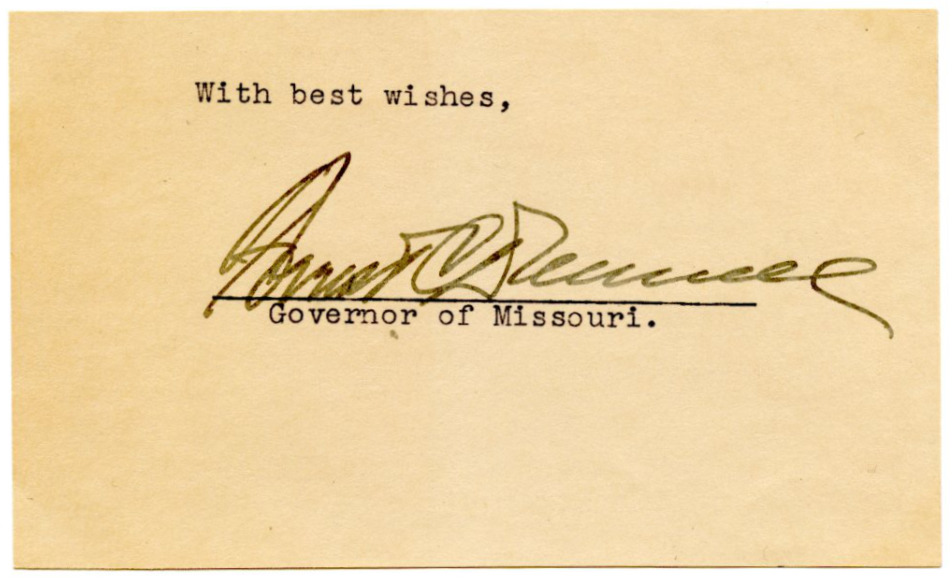 With best wishes,
Forrest C. Donnell
Governor of Missouri.